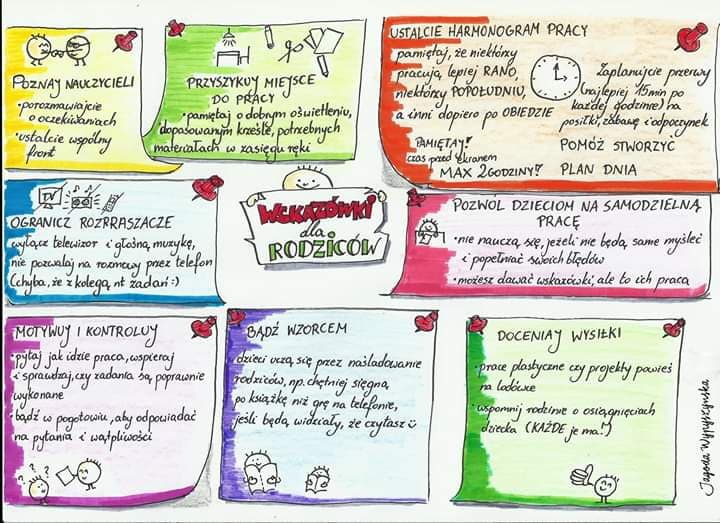 POZNAJ NAUCZYCIELI
• porozmawiajcie
o oczekiwaniach
• ustalcie wspólny
front
PRZYSZYKUJ MIEJSCE
DO PRACY
• pamiętaj o dobrym oświetleniu,
dopasowanym krześle, potrzebnych
materiałach w zasięgu ręki
USTALCIE HARMONOGRAM PRACY
pamiętaj, że niektórzy
pracują lepiej RANO,
niektórzy POPOŁUDNIU,
a inni dopiero po OBIEDZIE
PAMIĘTAJ!
czas przed ekranem
MAX 2 GODZINY!
Zaplanujcie przerwy
(najlepiej 15 min po
każdej godzinie) na
posiłki, zabawę i odpoczynek
POMÓŻ STWORZYĆ
PLAN DNIA
TV
OGRANICZ ROZPRASZACZE
wyłącz telewizor i głośną muzykę,
nie pozwalaj na rozmowy przez telefon
(chyba, że z kolegą nt zadań :)
WSKAZÓWKI
dla
RODZICÓW
POZWÓL DZIECIOM NA SAMODZIELNĄ
PRACĘ
• nie nauczą się, jeżeli nie będą same myśleć
i popełniać swoich błędów
• możesz dawać wskazówki, ale to ich praca
MOTYWUJ I KONTROLUJ
• pytaj jak idzie praca, wspieraj
i sprawdzaj, czy zadania są poprawnie
wykonane
• bądź w pogotowiu, aby odpowiadać
na pytania i wątpliwości
? ? ?
BĄDŹ WZORCEM
dzieci uczą się przez naśladowanie
rodziców, np. chętniej sięgną
po książkę niż grę na telefonie,
jeśli będą widziały, że czytasz :)
DOCENIAJ WYSIŁKI
• prace plastyczne czy projekty powieś
na lodówce
• wspomnij rodzinie o osiągnięciach
dziecka (KAŻDE je ma!)